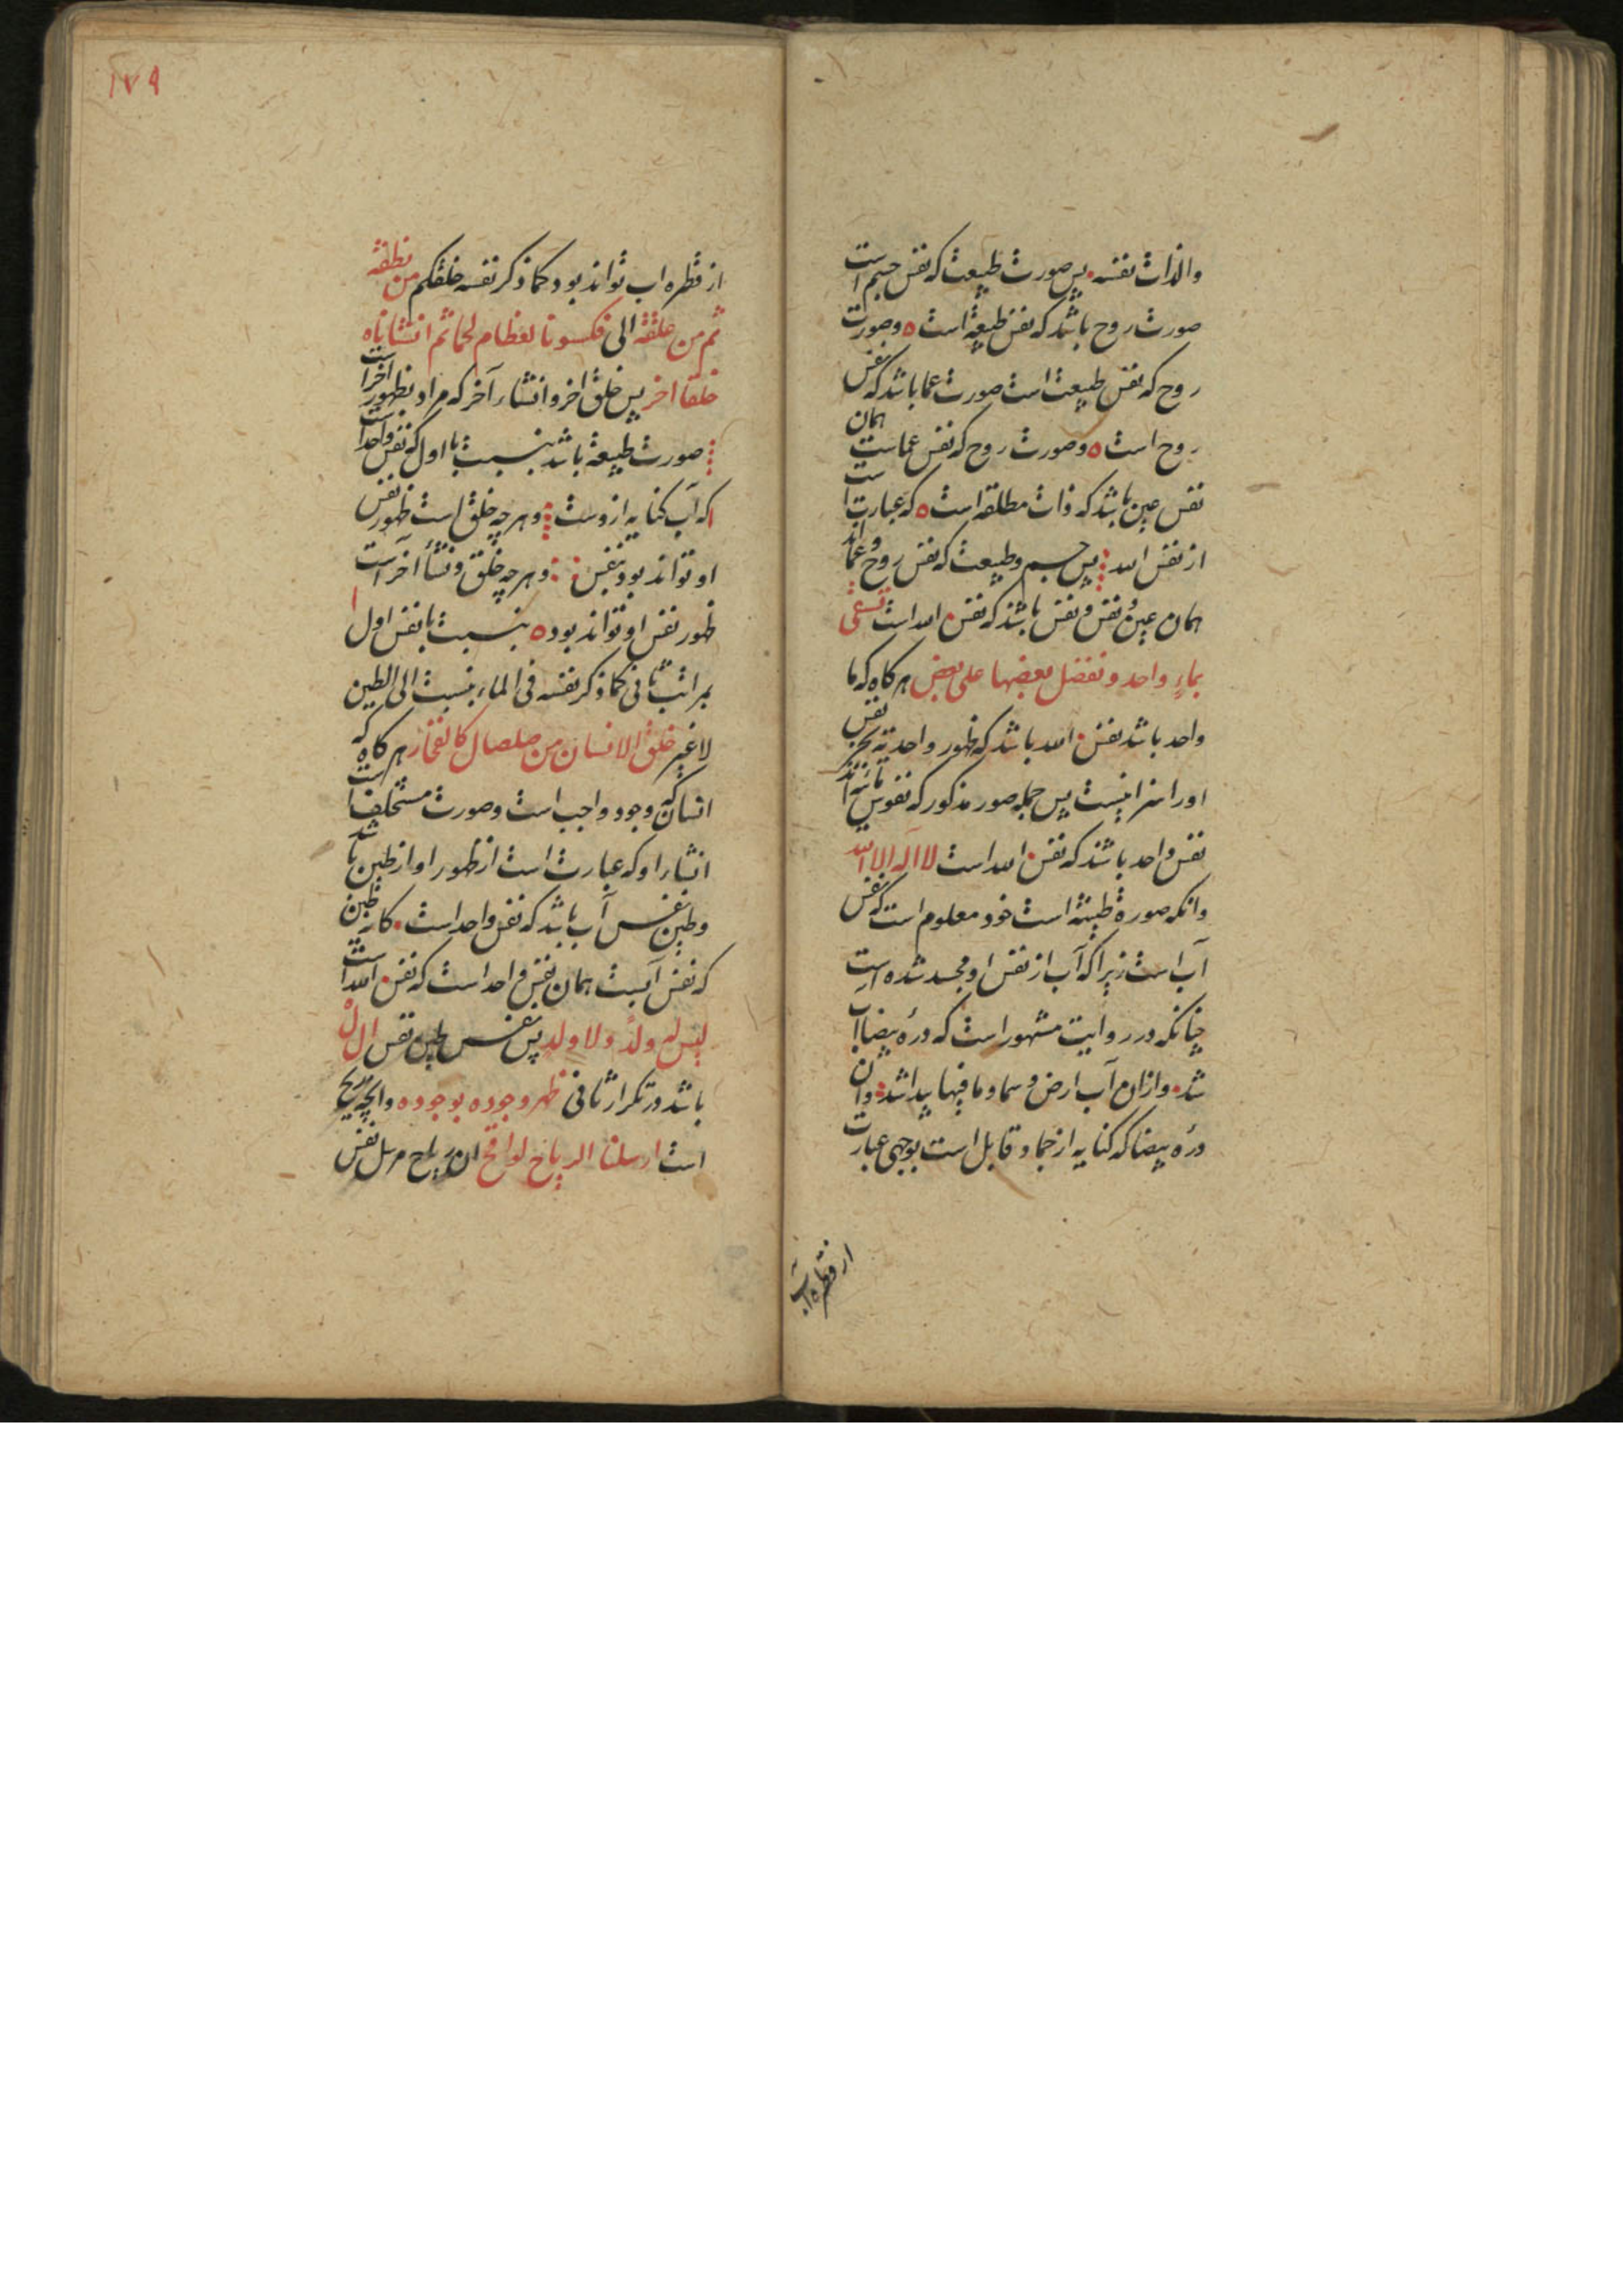 والذات نفسه پس صورت طبیعت که نفس جسم است
صورت روح باشد که نفس طبیعة است ه وصورت
روح که نفس طبیعت است صورت عما باشد که نفس
روح است ه وصورت روح که نفس عماست همان
نفس عین باشد که ذات مطلقه است ه که عبارت است
از نفس الله پس جسم وطبیعت که نفس روح وعما اند
همان عین ونفس ونفس باشد که نفس الله است تسقی
بماءٍ واحد ونفضل بعضها علی بعض هر کاه که ما
واحد باشد نفس الله باشد که ظهور واحدیة بجز نفس
اورا سزا نیست پس جمله صور مذکور که نفوس
نفس واحد باشد که نفس الله است لا اله الا الله
وانکه صورة طینة است خود معلوم است که نفس
آب است زیرا که آب از نفس او مجسد شده است
چنانکه در روایت مشهور است که درهٔ بیضا آب
شد وازان آب ارض وسما وما فیها پیدا شد وان
درهٔ بیضا که کنایه از جماد قابل است بوجهی عبارت
از قطره اب
١٧٩
از قطره اب تواند بود کما ذکر نفسه خلقکم من نطفة
ثم من علقة الی فکسونا لعظام لحما ثم انشاناه
خلقا اخر پس خلق اخر وانشاء آخر که مراد بظهور آخر است
صورت طبیعة باشد بنسبت با اول که نفس واحد است
که آب کنایه ازوست وهر چه خلق است ظهور نفس
او تواند بود بنفس وهر چه خلق ونشأ آخر است
ظهور نفس او تواند بود ه بنسبت با نفس اول
بمراتب ثانی کما ذکر نفسه فی الماء بنسبت الی الطین
لا غیر خلق الانسان من صلصال کالفخار هر کاه که
انسان که وجود واجب است وصورت مستخلف است
انشاء او که عبارت است از ظهور او از طین باشد
وطین نفس آب باشد که نفس واحد است کار طین
که نفس آبست همان نفس واحد است که نفس الله است
لیس له ولدٌ ولا ولد پس نفس طین نفس ال له
باشد در تکرار ثانی ظهر وجوده بوجوده وانچه ریح
است ارسلنا الریاح لواقح ان ریاح مرسل نفس